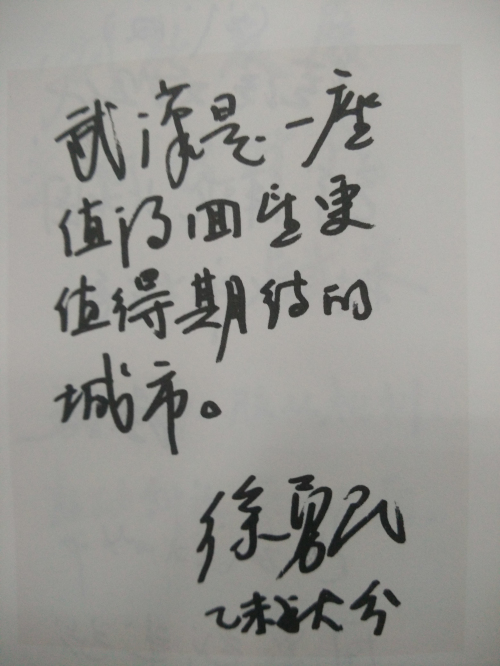 武汉是一座
值得回望更
值得期待的
城市。
徐勇民
乙未秋分